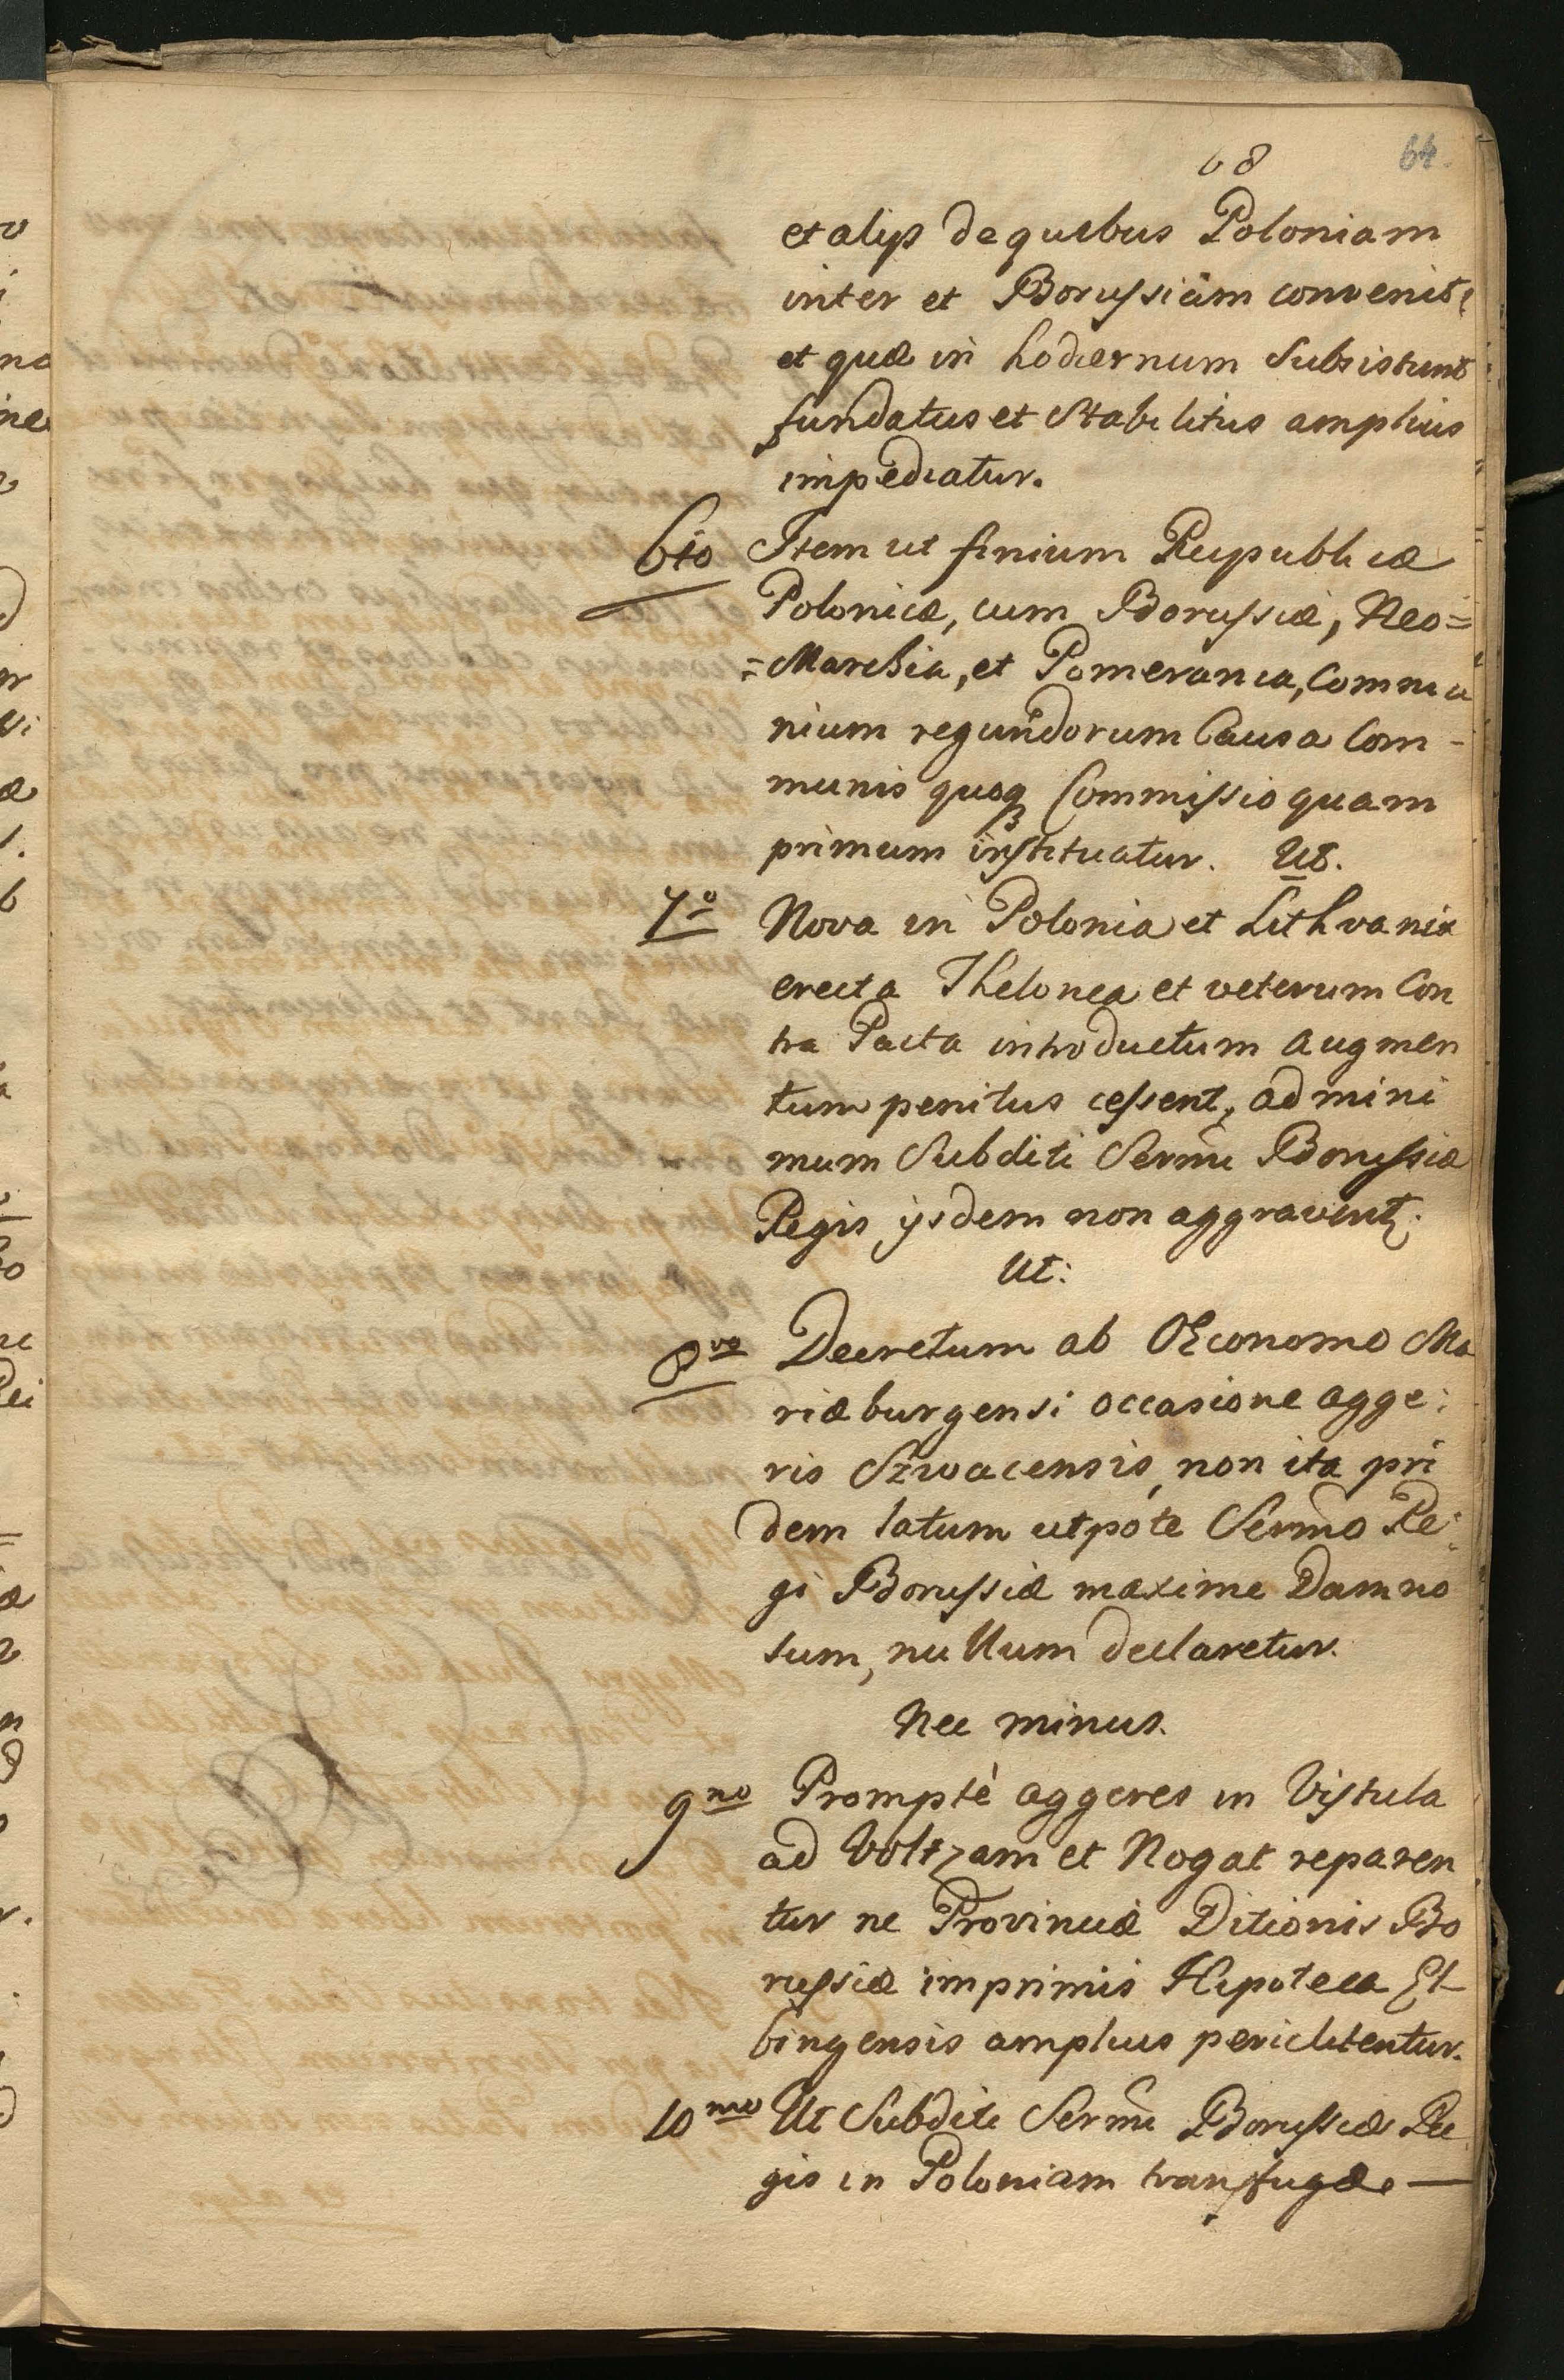 68
64.
et alijs de quibus Poloniam
inter et Borussiam convenit,
et quæ in hodiernum Subsistunt
fundatus et Stabilitus amplius
impediatur.
6to Item ut finium Reipublicæ
Polonicæ, cum Borussiæ, Neo=
=Marchia, et Pomerania, Commu
nium regundorum Causa Com-
munis quoq Commissio quam
primum instituatur. Ut.
7o Nova in Polonia et Lithvania
erecta Thelonea et veterum Con
tra Pacta introductum augmen
tum penitus cessent, ad mini
mum Subditi Sermi Borussiæ
Regis ijsdem non aggravent.
Ut:
8vo Decretum ab OEconomo Ma
riæburgensi occasione agge:
ris Szwacensis, non ita pri
dem latum utpote Sermo Re:
gi Borussiæ maxime Damno
sum, nullum declaretur.
Nec minus.
9no Promptè aggeres in Vistula
ad Voltzam et Nogat reparen
tur ne Provinciæ Ditionis Bo
russiæ imprimis Hipoteca El-
bingensis amplius periclitentur.
10mo Ut Subditi Sermi Borussiæ Re
gis in Poloniam transfugæ —